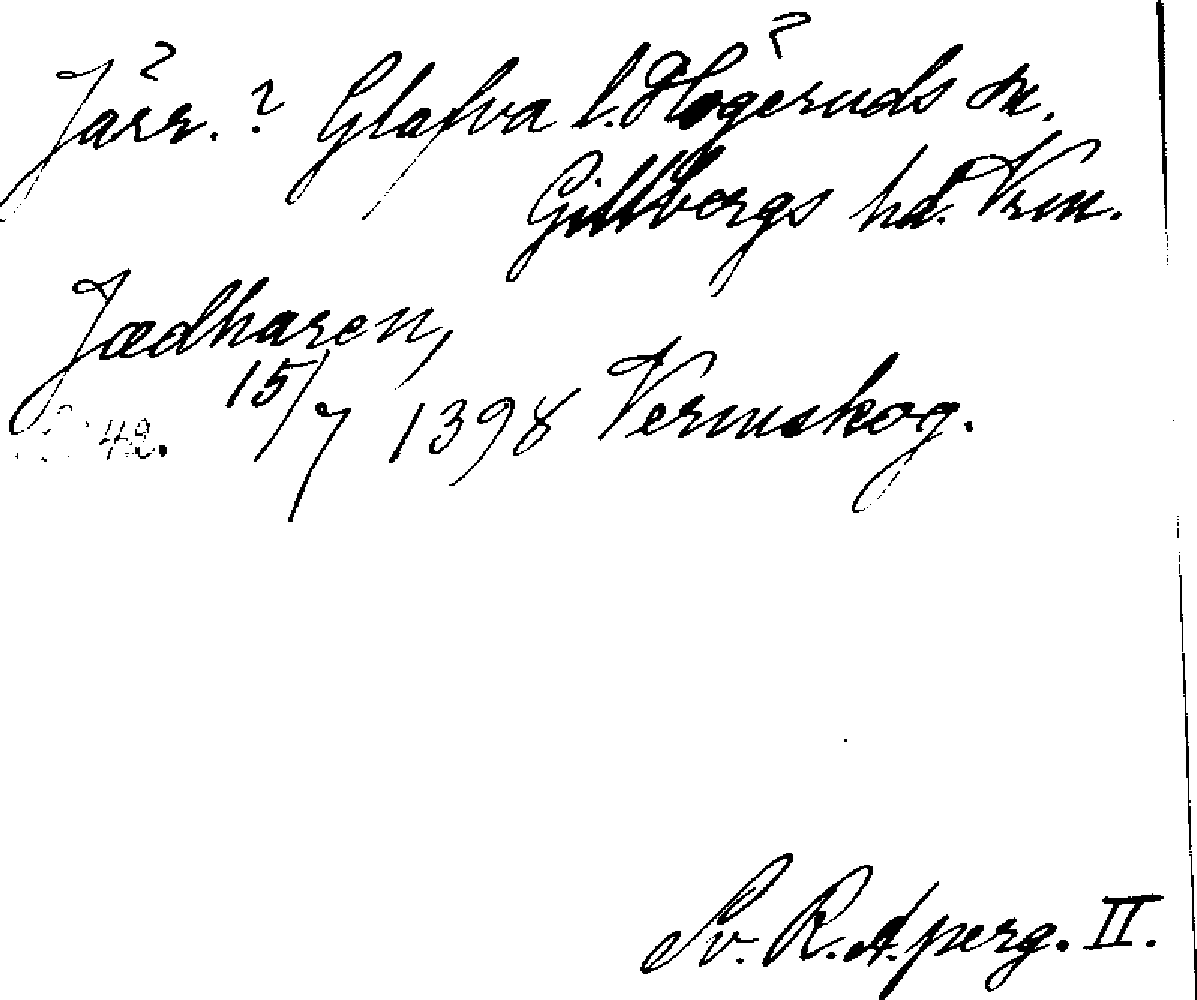 Järr. ? Glafva l. Högeruds sn.
Gillbergs hd. Vrm.
Jædharen,
15/7 1398 Vermskog.
42.
Sv. R. A. perg. II.